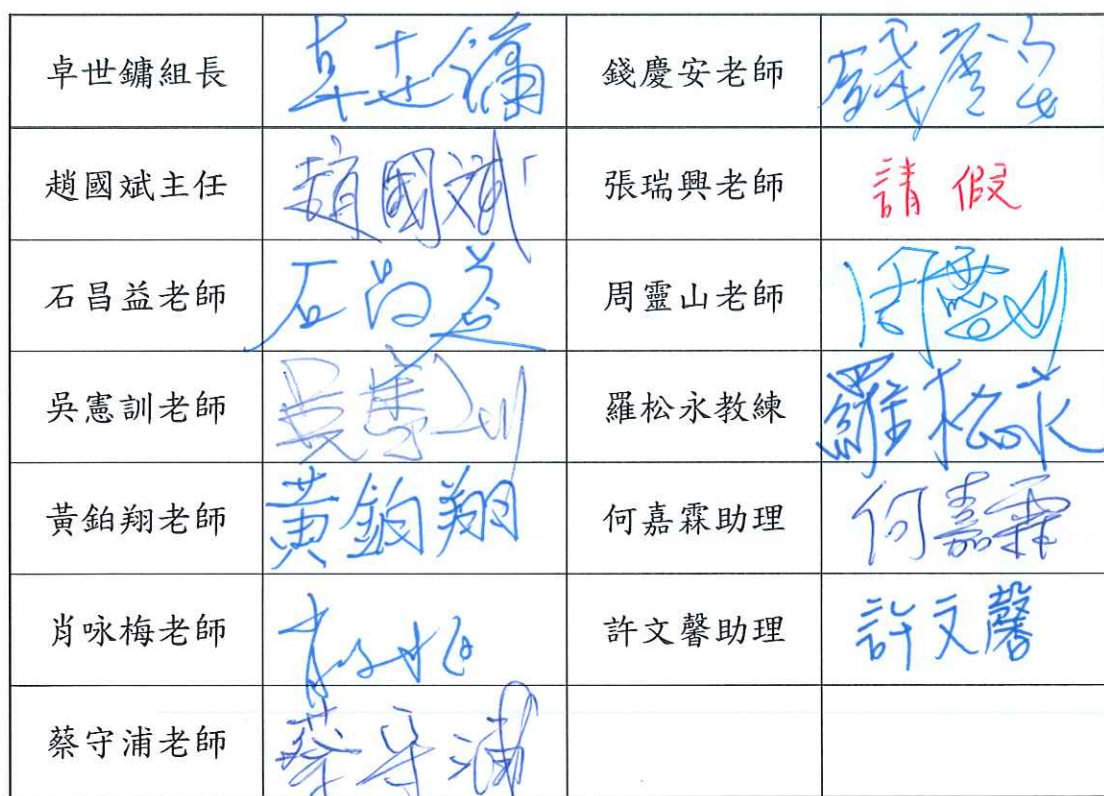 卓世鏞組長 卓世鏞 錢慶安老師 錢慶安
趙國斌主任 趙國斌 張瑞興老師 請假
石昌益老師 石昌益 周靈山老師 周靈山
吳憲訓老師 吳憲訓 羅松永教練 羅松永
黃鉑翔老師 黃鉑翔 何嘉霖助理 何嘉霖
肖咏梅老師 肖咏梅 許文馨助理 許文馨
蔡守浦老師 蔡守浦